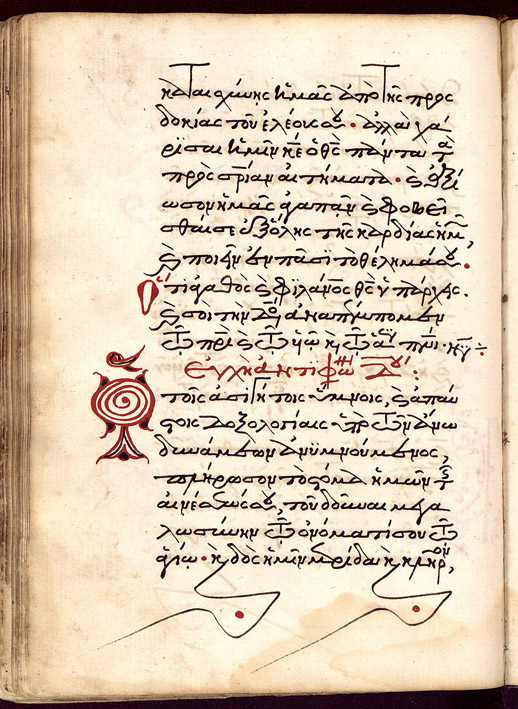 καταισχύνης ἡμᾶς ἀπὸ τῆς προσ
δοκίας τοῦ ἐλέους σου· ἀλλὰ χά
ρισαι ἡμῖν κε ὁ θς πάντα τὰ
πρὸς σριαν αἰτήματα· ϗ ἀξί
ωσον ἡμᾶς ἀγαπᾶν ϗ φοβεῖ
σθαί σε ἐξ ὅλης τῆς καρδίας ἡμ,
ϗ ποιεῖν ἐν πᾶσι τὸ θέλημά σου.
Ὅτι ἀγαθὸς ϗ φιλάνος θς ὑπάρχεις.
ϗ σοὶ τὴν δόξ ἀναπέμπομεν
τῷ πρὶ ϗ τῷ υἱῷ κ τῷ ἁγίω πνι· νῦν ÷
Εὐχὴ ἀντιφώ δ΄:
Ὁ τοῖς ἀσιγήτοις ὕμνοις, ϗ ἀπαύ
στοις δοξολογίαις ὑπὸ τῶν ἄνω
δυνάμεων ἀνυμνούμενος,
πλήρωσον τὸ στόμα ἡμῶν τῆς
αἰνέσεώς σου, τοῦ δοῦναι μεγα
λωσύνην τῷ ὀνόματί σου τῷ
ἁγίω· κ δὸς ἡμῖν μερίδα κ κλῆρον,